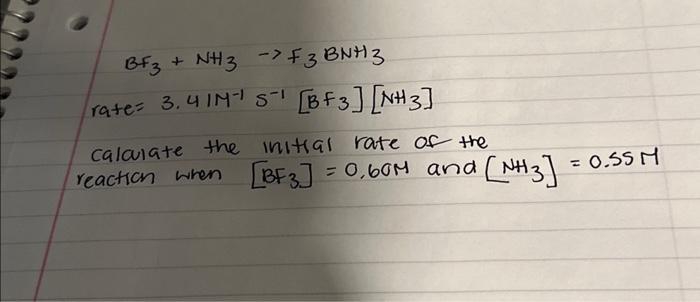 BF3 + NH3 -> F3BNH3
rate= 3.41M-1 s-1 [BF3][NH3]
calculate the initial rate of the
reaction when [BF3] = 0.60M and [NH3] = 0.55M